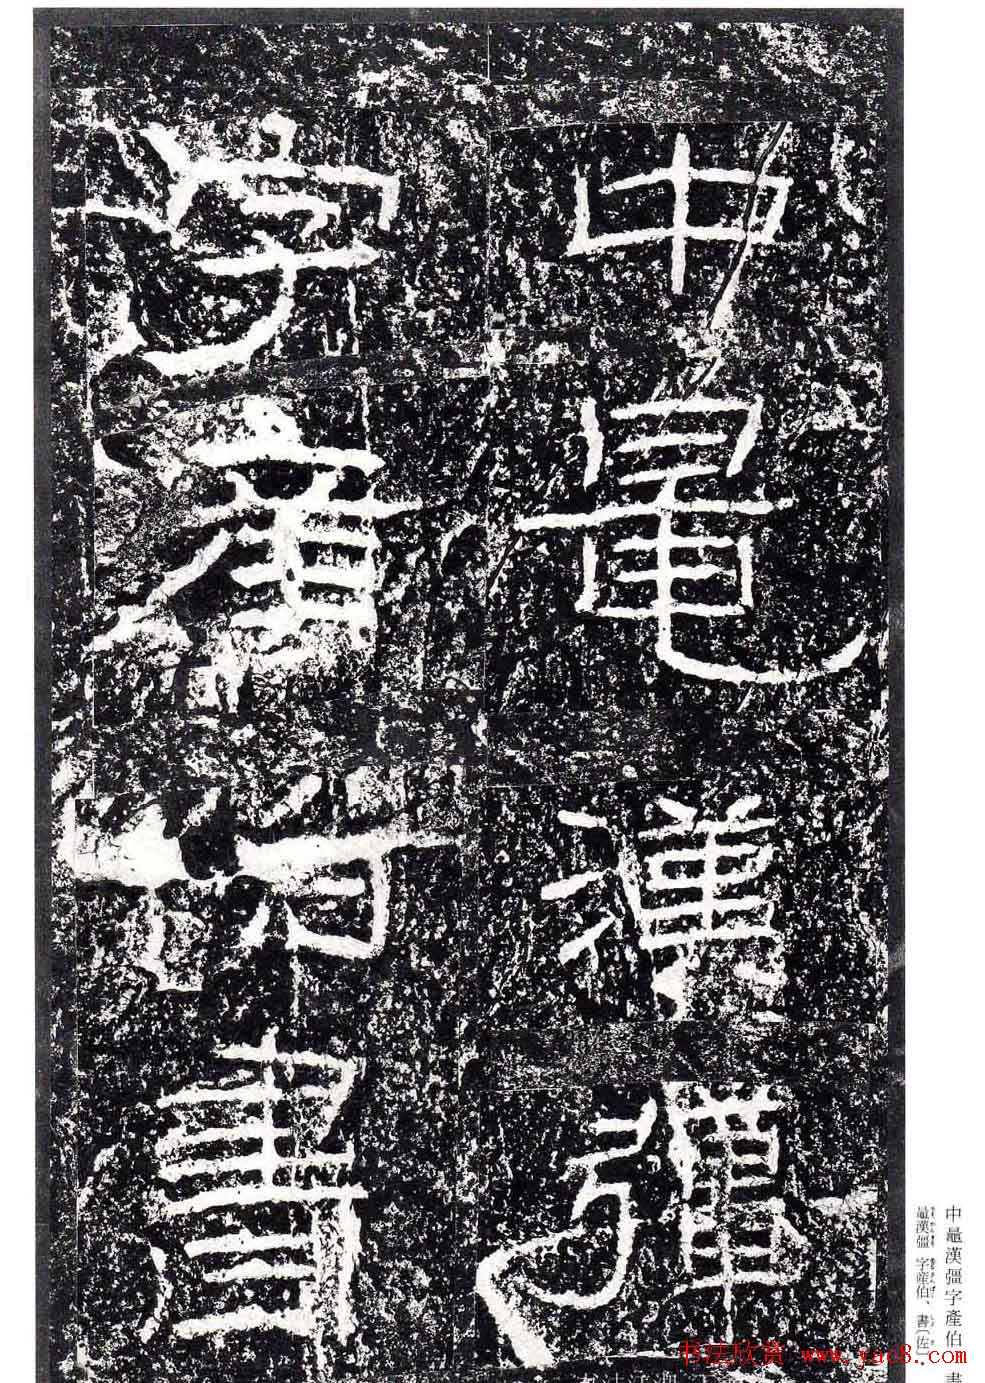 中鼂漢彊
字產伯書
中鼂漢彊字產伯書
鼂漢彊 字産伯、書〔佐〕
书法欣赏 www.yac8.com